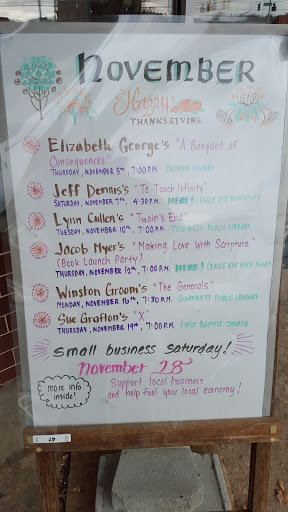 NOVEMBER
Happy
THANKSGIVING
Elizabeth George's "A Banquet of
Consequences"
THURSDAY, NOVEMBER 5th, 7:00 P.M. DECATUR LIBRARY
Jeff Dennis's "To Touch Infinity"
SATURDAY, NOVEMBER 7th, 4:30 P.M. HERE! (EAGLE EYE BOOK SHOP)
Lynn Cullen's "Twain's End"
TUESDAY, NOVEMBER 10th, 7:00 P.M. TOCO HILLS PUBLIC LIBRARY
Jacob Myer's "Making Love With Scripture"
(Book Launch Party)
THURSDAY, NOVEMBER 12th, 7:00 P.M. HERE! (EAGLE EYE BOOK SHOP)
Winston Groom's "The Generals"
MONDAY, NOVEMBER 16th, 7:30 P.M. GWINNETT PUBLIC LIBRARY
Sue Grafton's "X"
THURSDAY, NOVEMBER 19th, 7:00 P.M. FIRST BAPTIST CHURCH
Small business Saturday!
November 28
more info
inside!
Support local business
and help fuel your local economy!